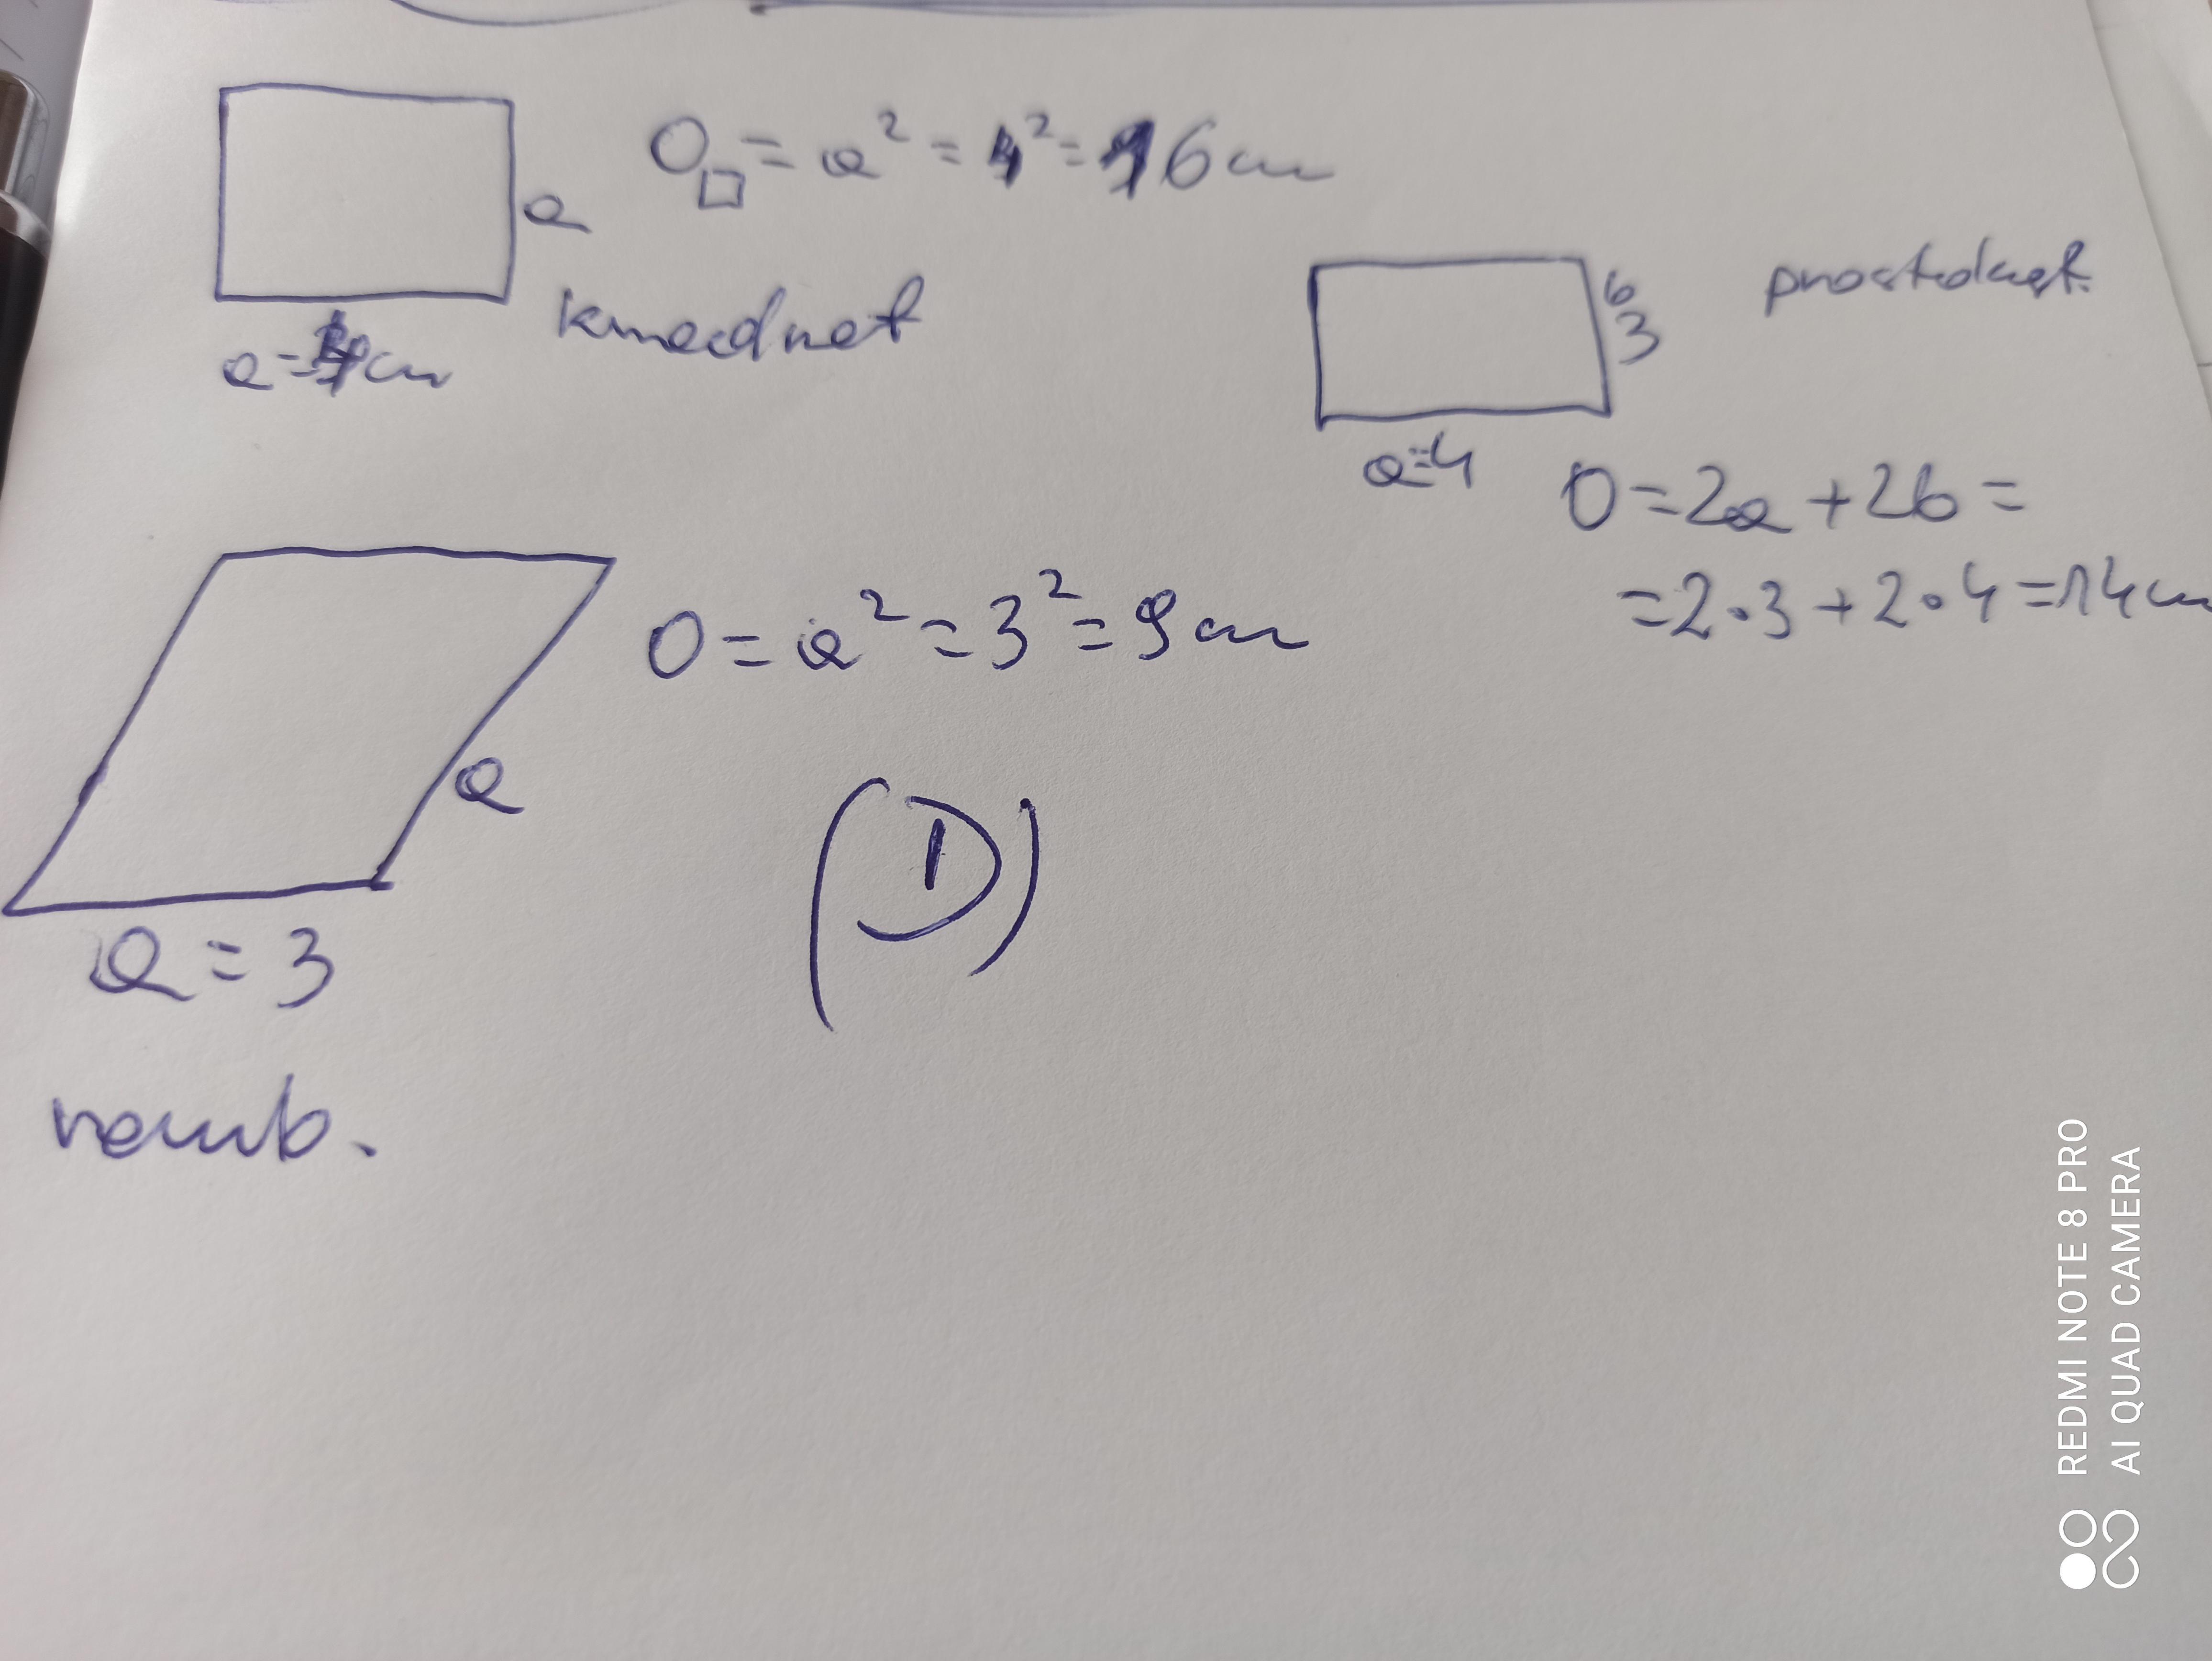 O□ = a² = 4² = 16 cm
a
a = 4 cm
kwadrat
prostokąt.
b
3
a=4
O = 2a + 2b =
= 2·3 + 2·4 = 14 cm
O = a² = 3² = 9 cm
a
a = 3
romb.
(D)
REDMI NOTE 8 PRO
AI QUAD CAMERA